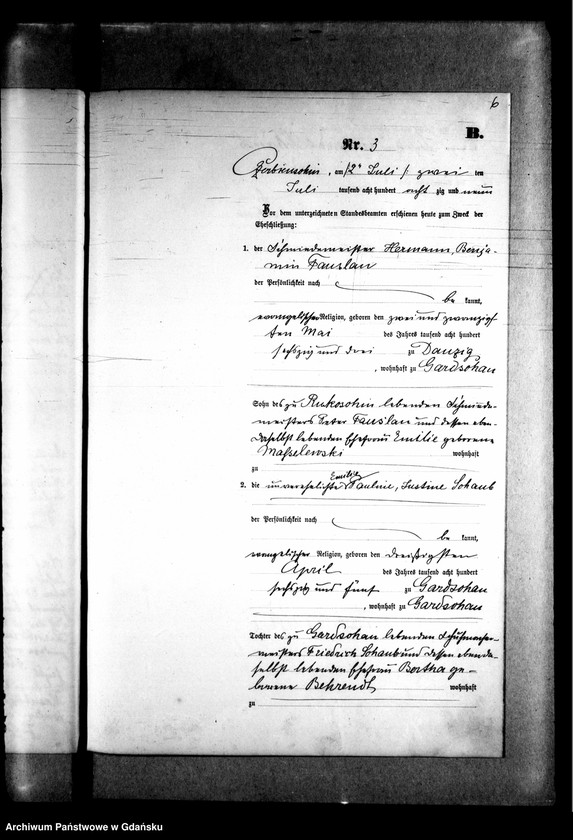 6
B.
Nr. 3
am 2ten Juli /: zwei ten
Juli tausend acht hundert acht zig und neun
Vor dem unterzeichneten Standesbeamten erschienen heute zum Zweck der
Eheschließung:
1. der Schmiedemeister Hermann, Benja-
min Fauslau
der Persönlichkeit nach
be kannt,
evangelischer Religion, geboren den zwei und zwanzigs-
ten Mai des Jahres tausend acht hundert
sechszig und drei zu Danzig
, wohnhaft zu Gardschau
Sohn des zu Rukoschin lebenden Schmiede-
meisters Peter Fauslau und dessen eben-
daselbst lebenden Ehefrau Emilie geborene
Masselewski wohnhaft
zu
Emilie
2. die unverehelichte Pauline, Justine Schaub
der Persönlichkeit nach
be kannt,
evangelischer Religion, geboren den dreißigsten
April des Jahres tausend acht hundert
sechszig und fünf zu Gardschau
, wohnhaft zu Gardschau
Tochter des zu Gardschau lebenden Schuhmacher-
meisters Friedrich Schaub und dessen ebenda-
selbst lebenden Ehefrau Bertha ge-
borene Behrendt wohnhaft
zu
Archiwum Państwowe w Gdańsku